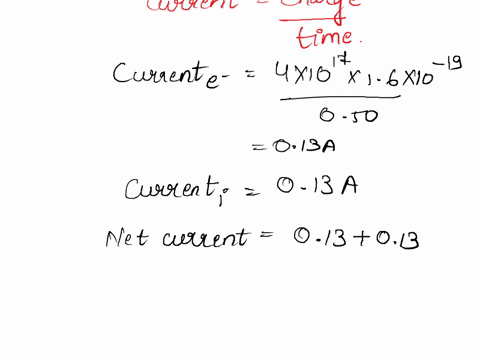 Current = Charge
time.
Current e⁻ = 4×10¹⁷ × 1.6×10⁻¹⁹
0.50
= 0.13A
Current i = 0.13 A
Net current = 0.13 + 0.13